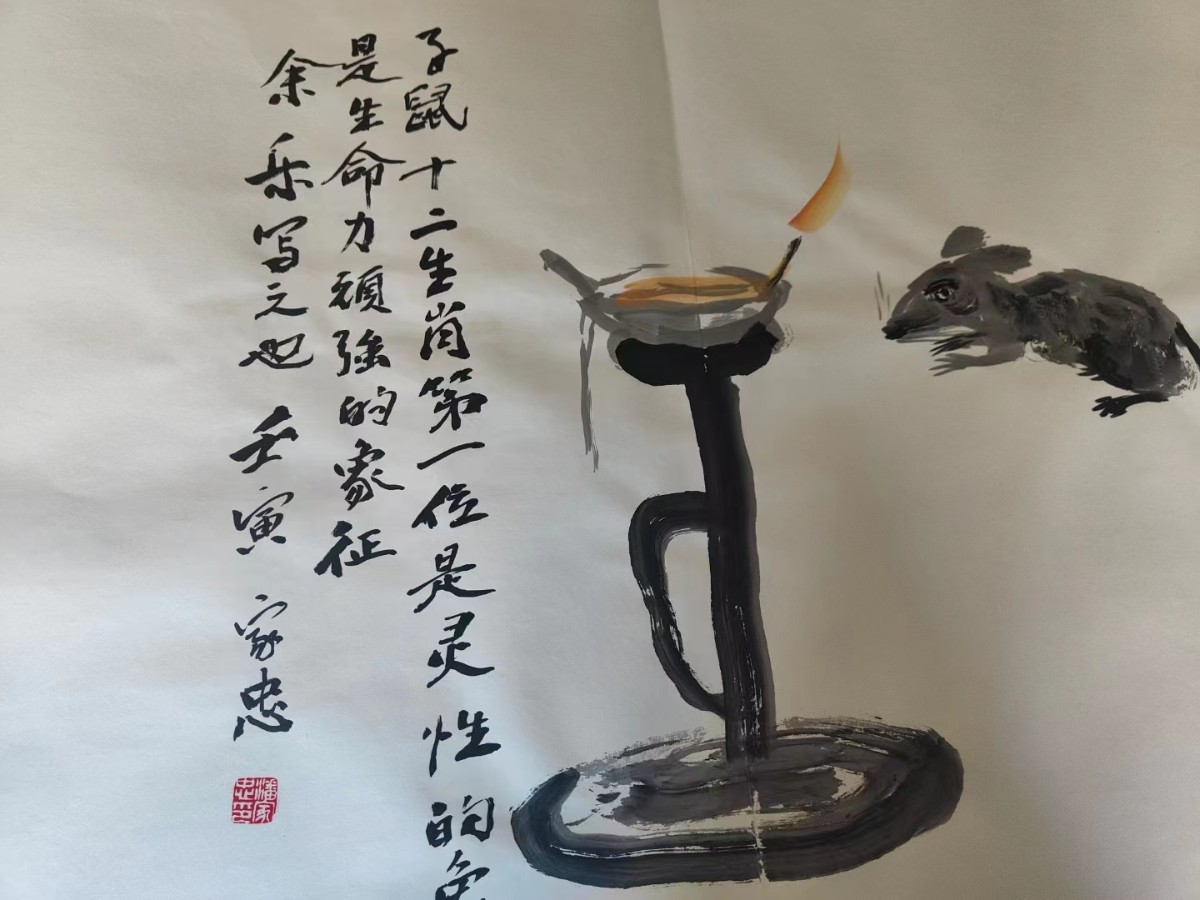 子鼠十二生肖第一位是灵性的
是生命力頑強的象征
余乐写之也 壬寅 家忠
潘家忠印